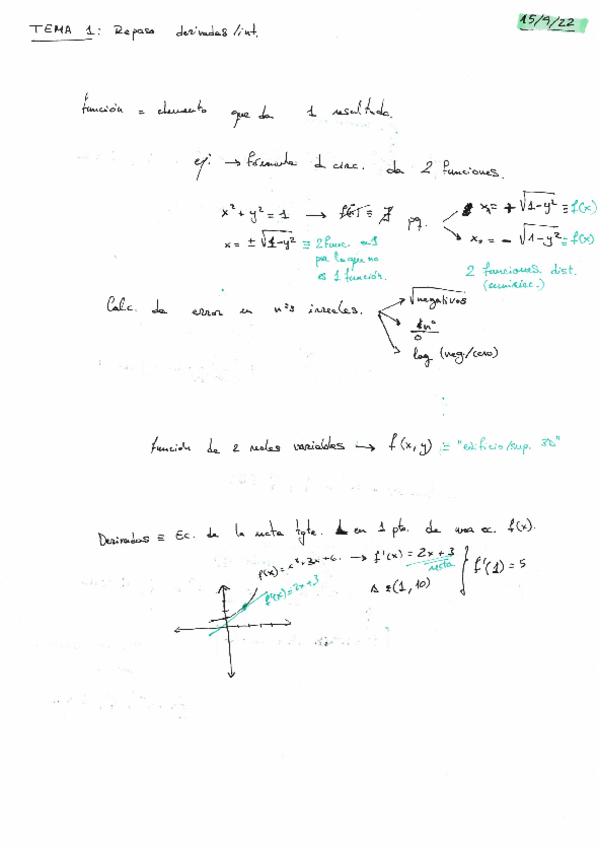 TEMA 1: Repaso derivadas/int.
15/9/22
Función = elemento que da 1 resultado.
ej: → Fórmula d circ. da 2 funciones.
x² + y² = 1 →
x = ± √1-y² ≡ 2 func. en 1
por lo que no
es 1 función.
x₁ = + √1-y² ≡ f(x)
x₂ = - √1-y² ≡ f(x)
2 funciones dist.
(semicirc.)
Calc. da error en nºs irreales.
√negativos
nº/0
log (neg/cero)
Función de 2 reales variables → f(x,y) ≡ "edificio/sup. 3D"
Derivadas ≡ Ec. de la recta tgte. en 1 pto. de una ec. f(x).
f(x) = x² + 3x + 6 → f'(x) = 2x + 3
recta
(1, 10)
f'(1) = 5
f'(x) = 2x + 3